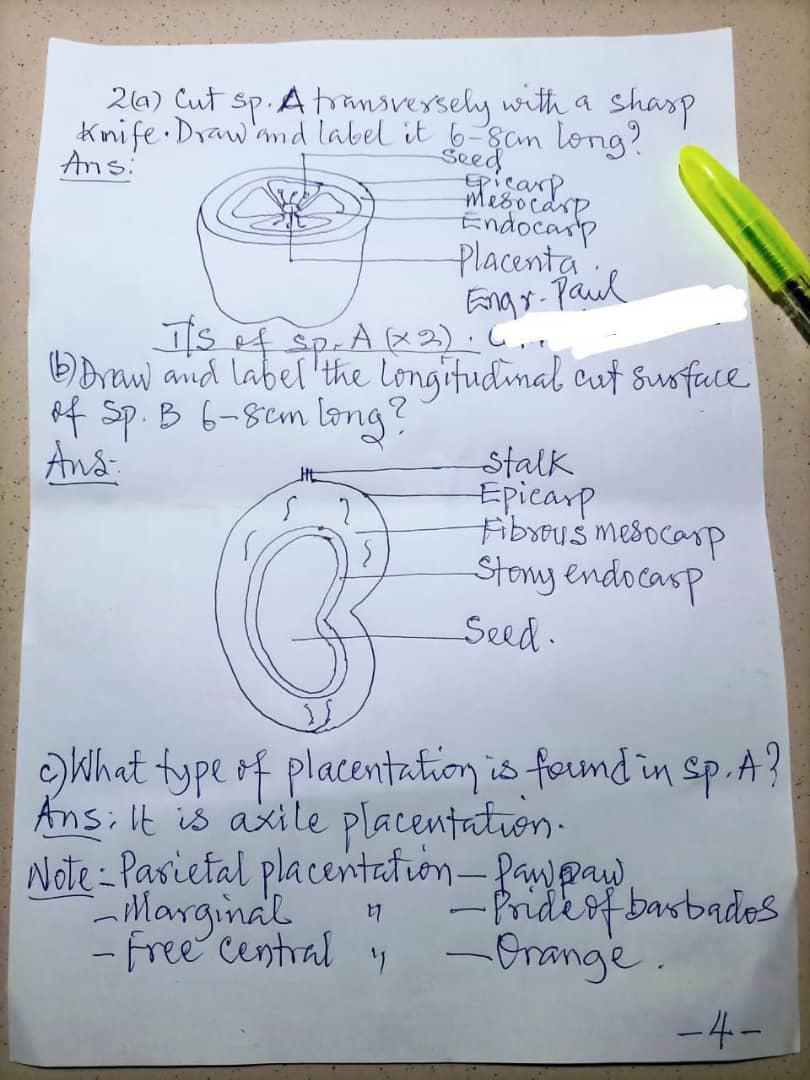 2(a) Cut sp. A transversely with a sharp
Knife. Draw and label it 6-8cm long?
Ans:
Seed
Epicarp
Mesocarp
Endocarp
Placenta.
Engr. Paul
T/S of sp. A (x2).
(b) Draw and label the longitudinal cut surface
of sp. B 6-8cm long?
Ans:
Stalk
Epicarp
Fibrous mesocarp
Stony endocarp
Seed.
c) What type of placentation is found in sp. A?
Ans: It is axile placentation.
Note:- Parietal placentation - Pawpaw
- Marginal " - Pride of barbados
- Free central " - Orange.
-4-